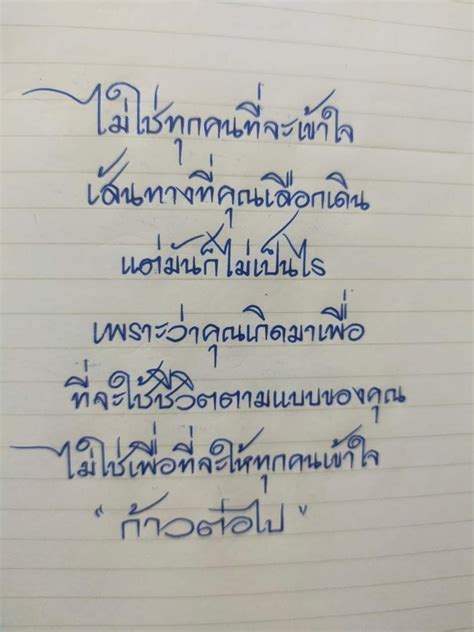 ไม่ใช่ทุกคนที่จะเข้าใจ
เส้นทางที่คุณเลือกเดิน
แต่มันก็ไม่เป็นไร
เพราะว่าคุณเกิดมาเพื่อ
ที่จะใช้ชีวิตตามแบบของคุณ
ไม่ใช่เพื่อที่จะให้ทุกคนเข้าใจ
"ก้าวต่อไป"